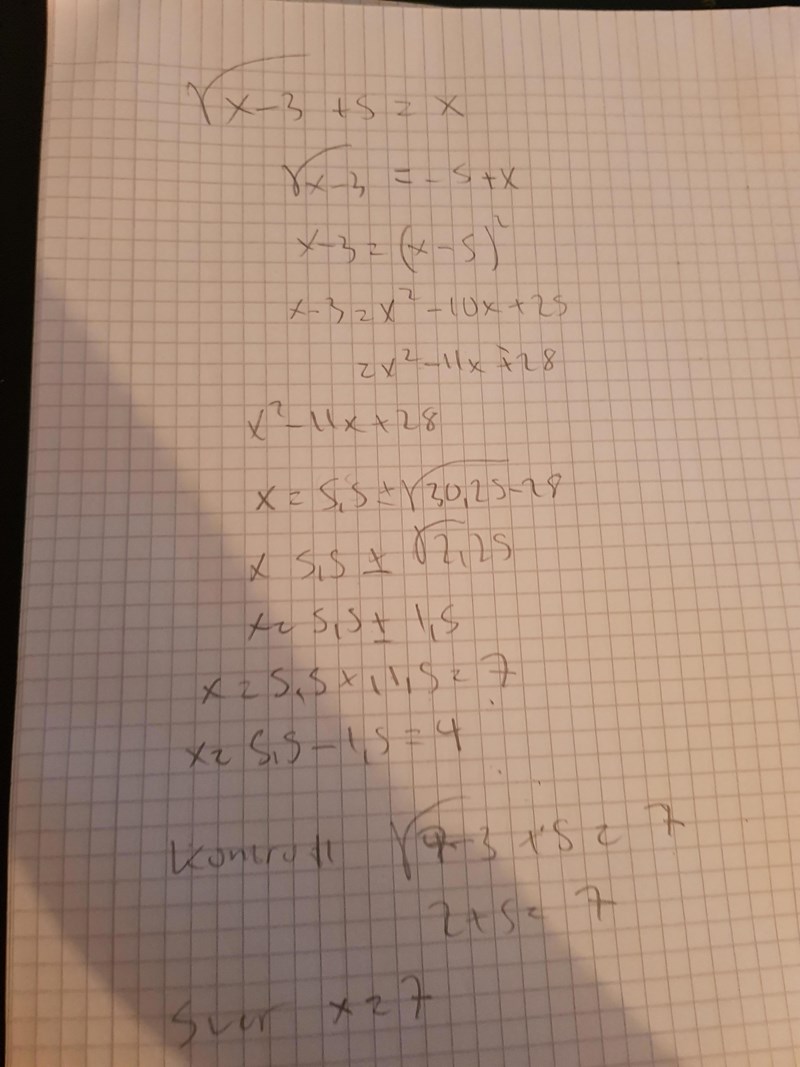 √x-3 + 5 = x
√x-3 = -5+x
x-3 = (x-5)²
x-3 = x²-10x+25
= x²-11x+28
x²-11x+28
x = 5,5 ± √30,25-28
x 5,5 ± √2,25
x = 5,5 ± 1,5
x = 5,5 + 1,5 = 7
x = 5,5 - 1,5 = 4
Kontroll √7-3 + 5 = 7
2+5 = 7
Svar x = 7